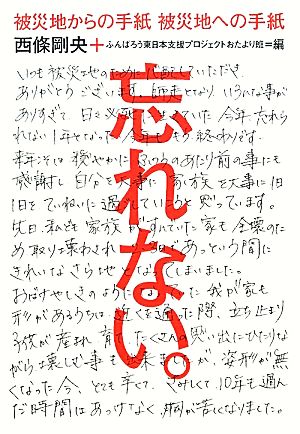 被災地からの手紙 被災地への手紙
西條剛央＋ふんばろう東日本支援プロジェクトおたより班＝編
忘れない。
いつも被災地のために
ありがとうございます。師走となり、いろいろな事が
ありすぎて、日々
れない1年となった今年ももう終わります。
来年こそは穏やかに、ふつうのあたり前の事にも
感謝し 自分を大事に 家族を大事に1日
1日をていねいに過ごしていこうと思っています。
先日、私ども家族がすんでいた家も全壊のた
め取り壊わされ 日であっという間に
きれいなさら地となってしまいました。
おばけやしきのようになった我が家も
形があるうちは、近くを通った際、立ち止まり
子供が産まれ育て たくさんの思い出にひたりな
がら懐しむ事も出来ましたが、姿形が無
くなった今、とても辛くて、さみしくて、10年も過ん
だ時間はあっけなく、胸が苦しくなりました。